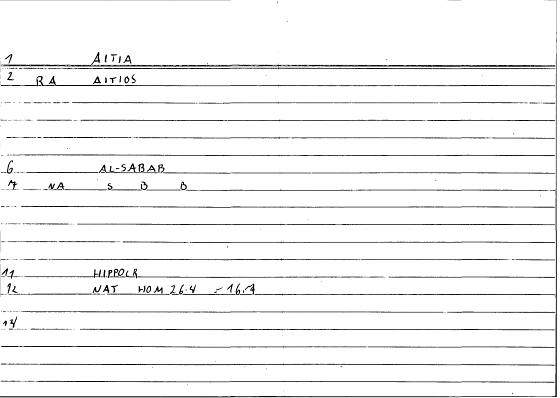 1 AITIA
2 RA AITIOS
6 AL-SABAB
7 NA S B B
11 HIPPOCR
12 NAT HOM 26.4 = 16.7
14